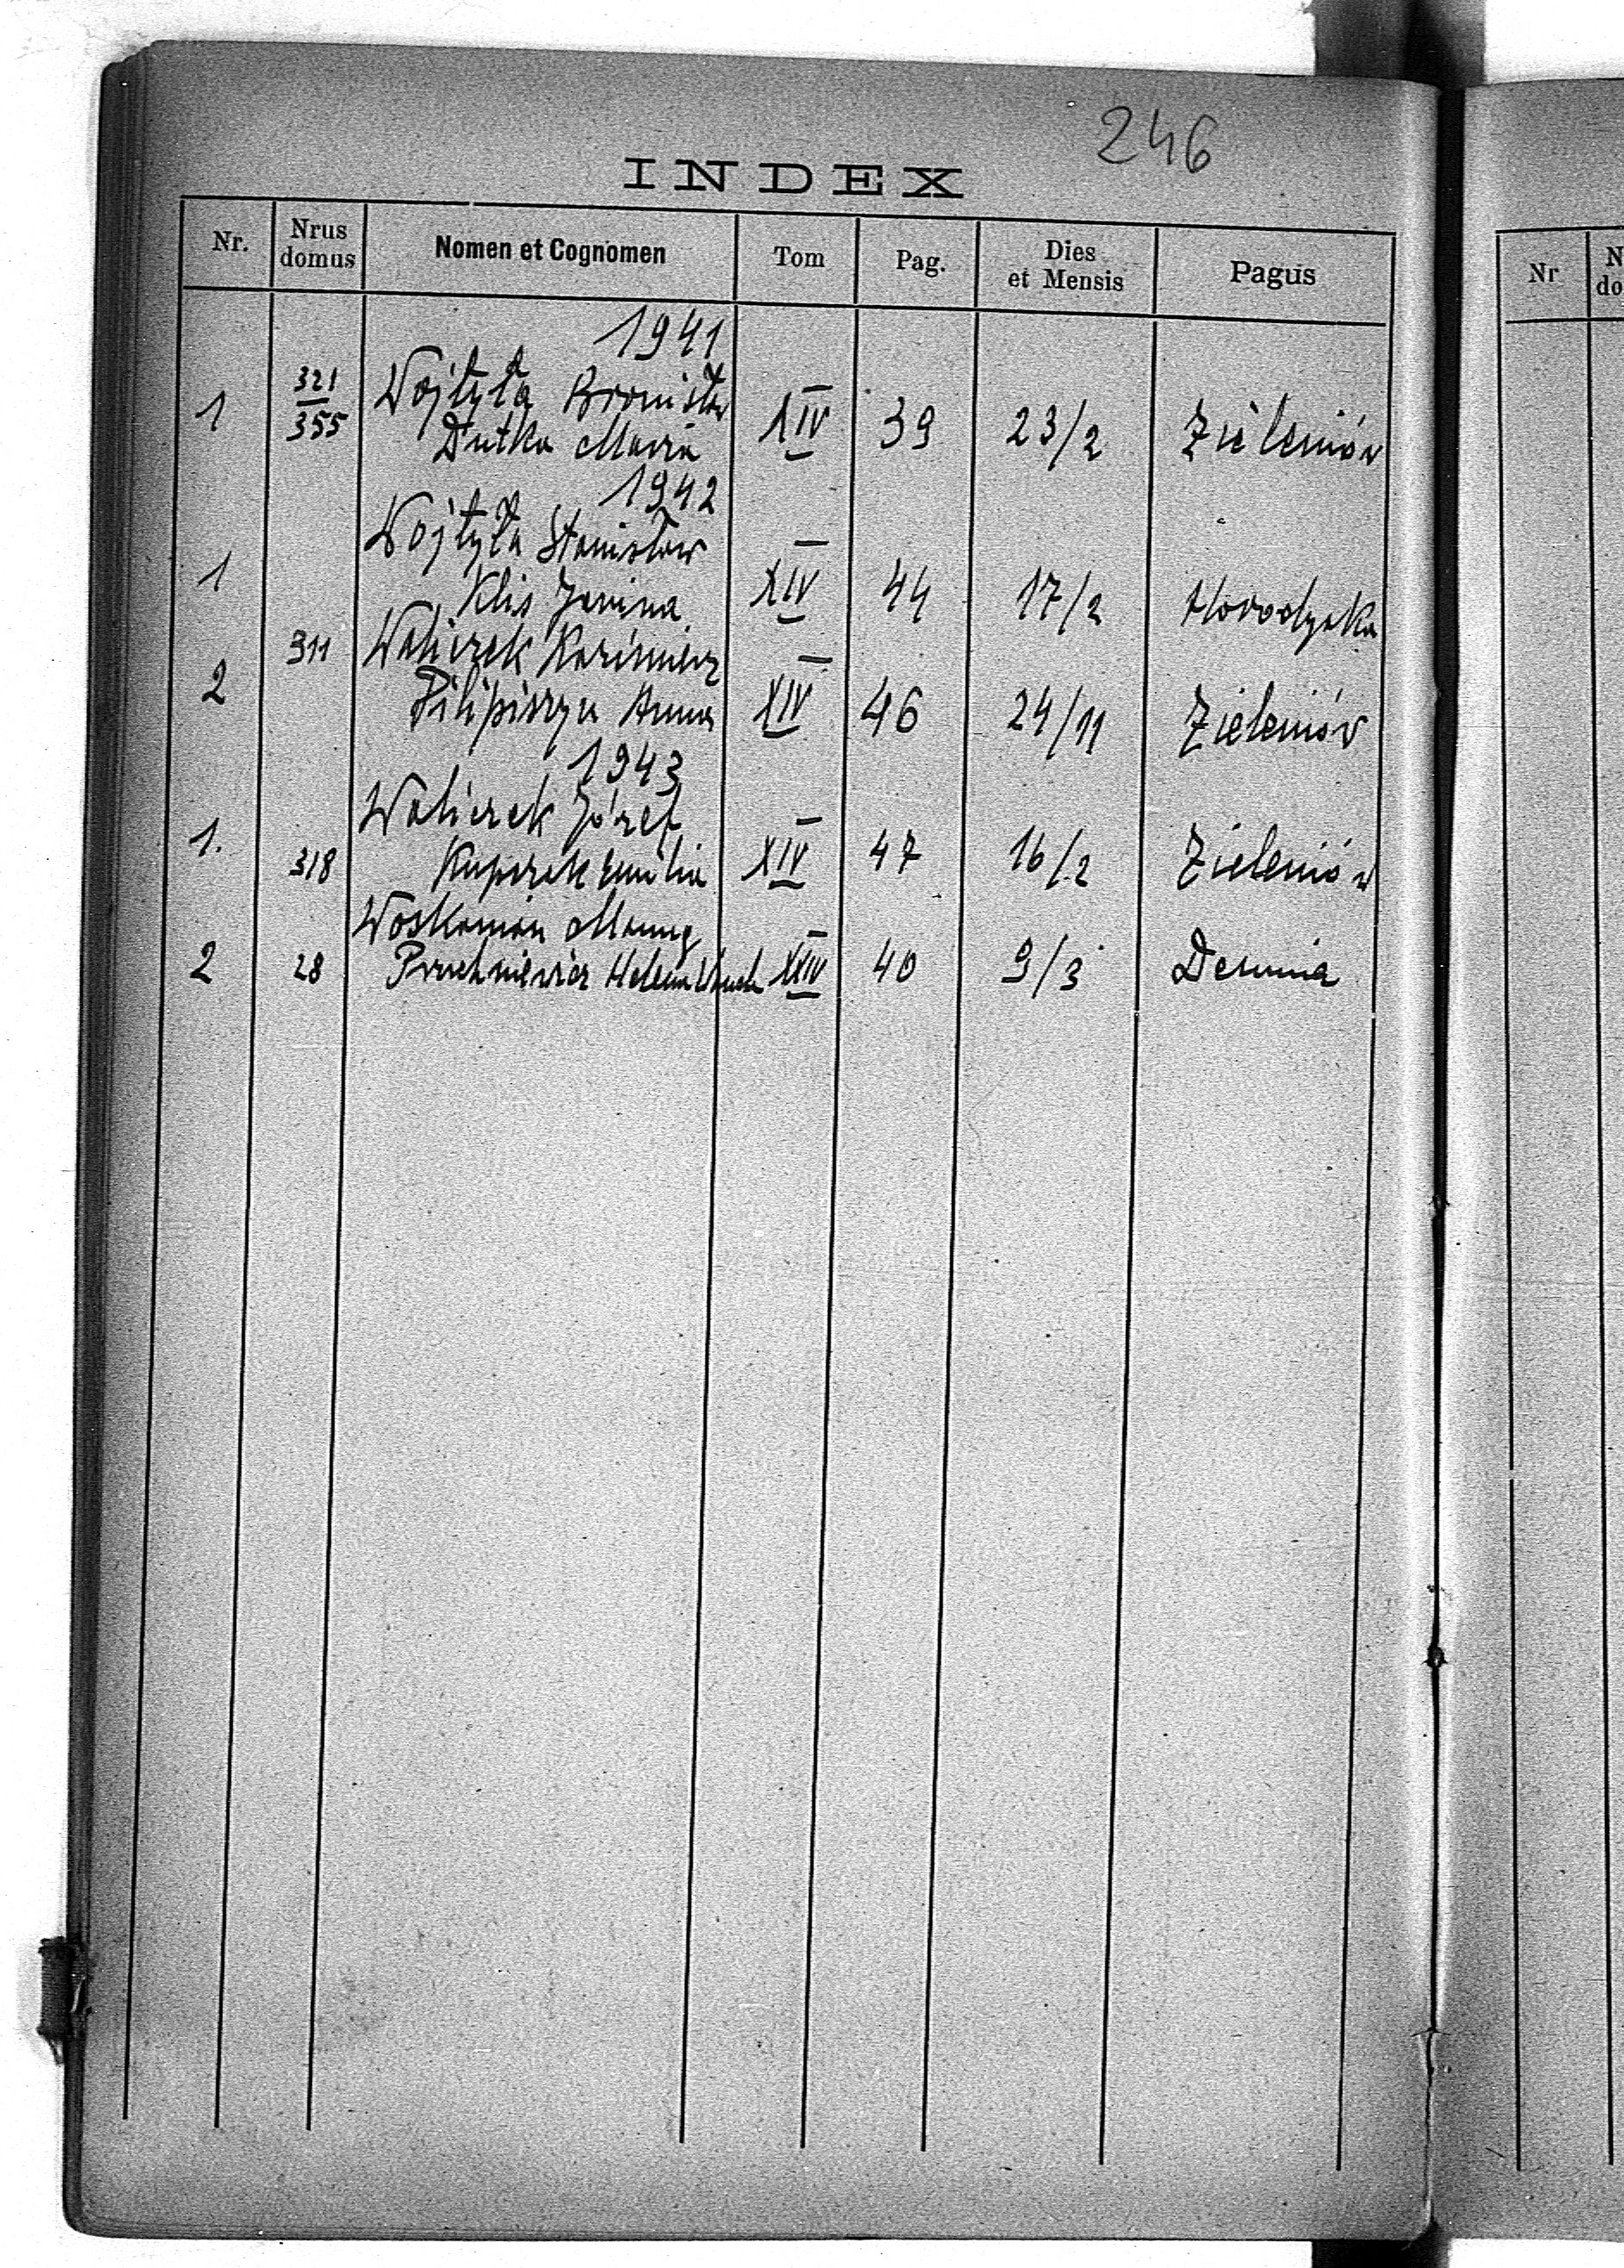 246
INDEX
Nr. Nrus domus Nomen et Cognomen Tom Pag. Dies et Mensis Pagus
1941
321 Wojtyła Bronisław
1 355 Dutka Maria XIV 39 23/2 Zieleniów
1942
Wojtyła Stanisław
1 Klis Janina XIV 44 17/2 Horodyska
311 Waliczek Kazimierz
2 Pilipiszyn Anna XIV 46 24/11 Zieleniów
1943
Waliczek Józef
1. 318 Kuperek Emilia XIV 47 16/2 Zieleniów
Woskanian
2 28 Helena XXIV 40 9/3
Nr N
do